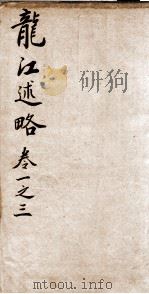 龍江述略 卷一之三
www.mtoou.info